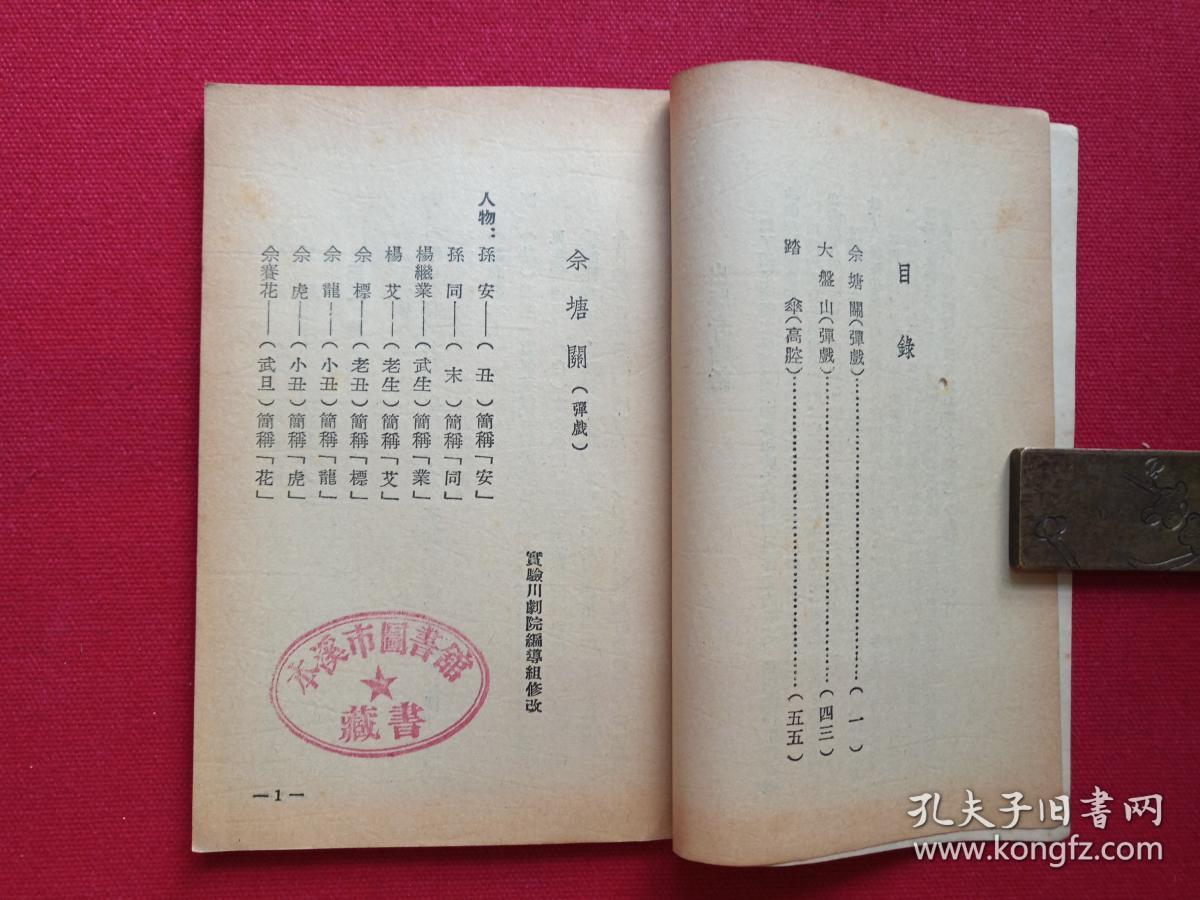 目錄
佘塘關(彈戲)………(一)
大盤山(彈戲)………(四三)
踏傘(高腔)………(五五)
佘塘關(彈戲)
實驗川劇院編導組修改
人物:孫安——(丑)簡稱「安」
孫同——(末)簡稱「同」
楊繼業——(武生)簡稱「業」
楊艾——(老生)簡稱「艾」
佘標——(老丑)簡稱「標」
佘龍——(小丑)簡稱「龍」
佘虎——(小丑)簡稱「虎」
佘賽花——(武旦)簡稱「花」
—1—
本溪市圖書舘
藏書
孔夫子旧书网
www.kongfz.com